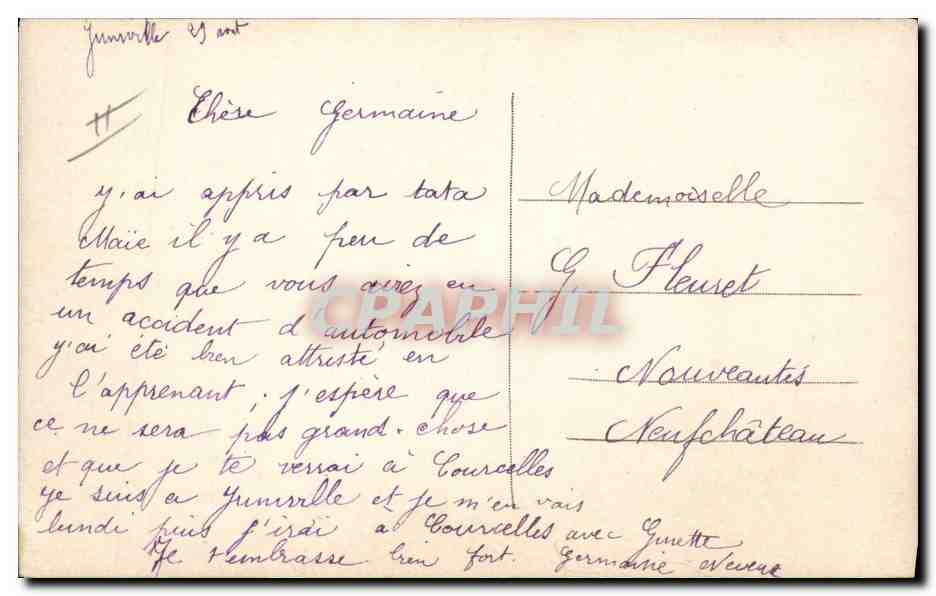 Juniville 29 août
Chère Germaine
J'ai appris par tata
Maïe il y a peu de
temps que vous aviez eu
un accident d'automobile
j'ai été bien attristé en
l'apprenant ; j'espère que
ce ne sera pas grand-chose
et que je te verrai à Courcelles
je suis a Juniville et je m'en vais
lundi puis j'irai a Courcelles avec Ginette
Je t'embrasse bien fort. Germaine
Mademoiselle
G. Fleuret
Nouveautés
Neufchâteau
CPAPHIL